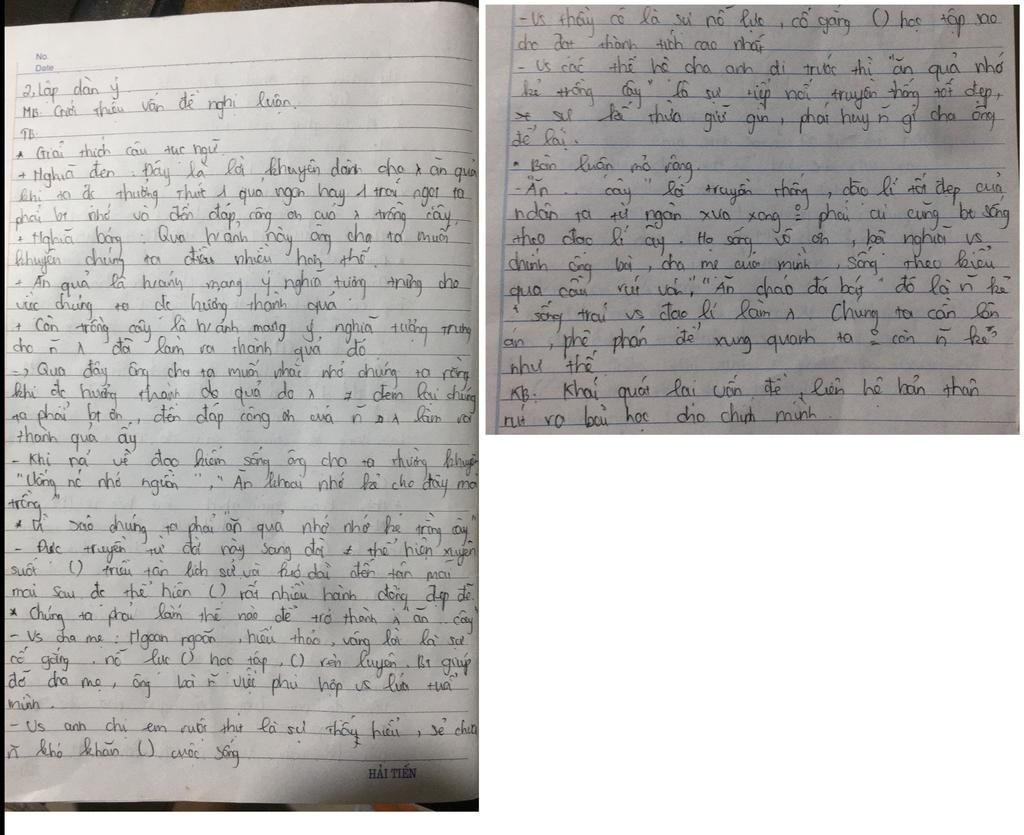 No.
Date
2, Lập dàn ý
MB: Giới thiệu vấn đề nghị luận.
TB:
* Giải thích câu tục ngữ
+ Nghĩa đen: Đây là lời khuyên dành cho x ăn quả
khi ta đc thưởng thức 1 quả ngon hay 1 trái ngọt ta
phải bt nhớ và đền đáp, công ơn của x trồng cây.
+ Nghĩa bóng: Qua h/ảnh này ông cha ta muốn
khuyên chúng ta điều nhiều hơn thế.
+ Ăn quả là h/ảnh mang ý nghĩa tượng trưng cho
việc chúng ta đc hưởng thành quả
+ Còn trồng cây là h/ảnh mang ý nghĩa tượng trưng
cho n̄ x đã làm ra thành quả đó
-> Qua đây ông cha ta muốn nhắc nhở chúng ta rằng
khi đc hưởng thành do quả do x ≠ đem lại chúng
ta phải bt ơn, đền đáp công ơn của n̄ x làm ra
thành quả ấy
- Khi nói về đạo hiếm sống ông cha ta thường khuyên
"Uống nc nhớ nguồn", "Ăn khoai nhớ kẻ cho dây mà
trồng"
* Vì sao chúng ta phải "ăn quả nhớ nhớ kẻ trồng cây"
- Được truyền từ đời này sang đời ≠ thể hiện xuyên
suốt () triều tần lịch sử và kéo dài đến tận mai
mai sau đc thể hiện () rất nhiều hành động đẹp đẽ.
* Chúng ta phải làm thế nào để trở thành x "ăn .. cây"
- Vs cha mẹ: Ngoan ngoãn, hiếu thảo, vâng lời là sự
cố gắng. nỗ lực () học tập, () rèn luyện. Bt giúp
đỡ cha mẹ, ông bà n̄ việc phù hợp vs lứa tuổi
mình.
- Vs anh chị em ruột thịt là sự thấu hiểu, sẻ chia
n̄ khó khăn () cuộc sống
HẢI TIẾN
- Vs thầy cô là sự nỗ lực, cố gắng () học tập sao
cho đạt thành tích cao nhất
- Vs các thế hệ cha anh đi trước thì "ăn quả nhớ
kẻ trồng cây" là sự tiếp nối truyền thống tốt đẹp,
sự kế thừa giữ gìn, phát huy n̄ gì cha ông
để lại.
* Bàn luận mở rộng.
- Ăn .. cây" là truyền thống, đạo lí tốt đẹp của
ndân ta từ ngàn xưa xong phải ai cũng bt sống
theo đạo lí ấy. Họ sống vô ơn, bội nghĩa vs
chính ông bà, cha mẹ của mình, sống theo kiểu
qua cầu rút ván", "Ăn cháo đá bát" đó là n̄ kẻ
sống trái vs đạo lí làm x Chúng ta cần lên
án, phê phán để xung quanh ta còn n̄ kẻ
như thế
KB: Khái quát lại vấn đề, liên hệ bản thân
rút ra bài học cho chính mình